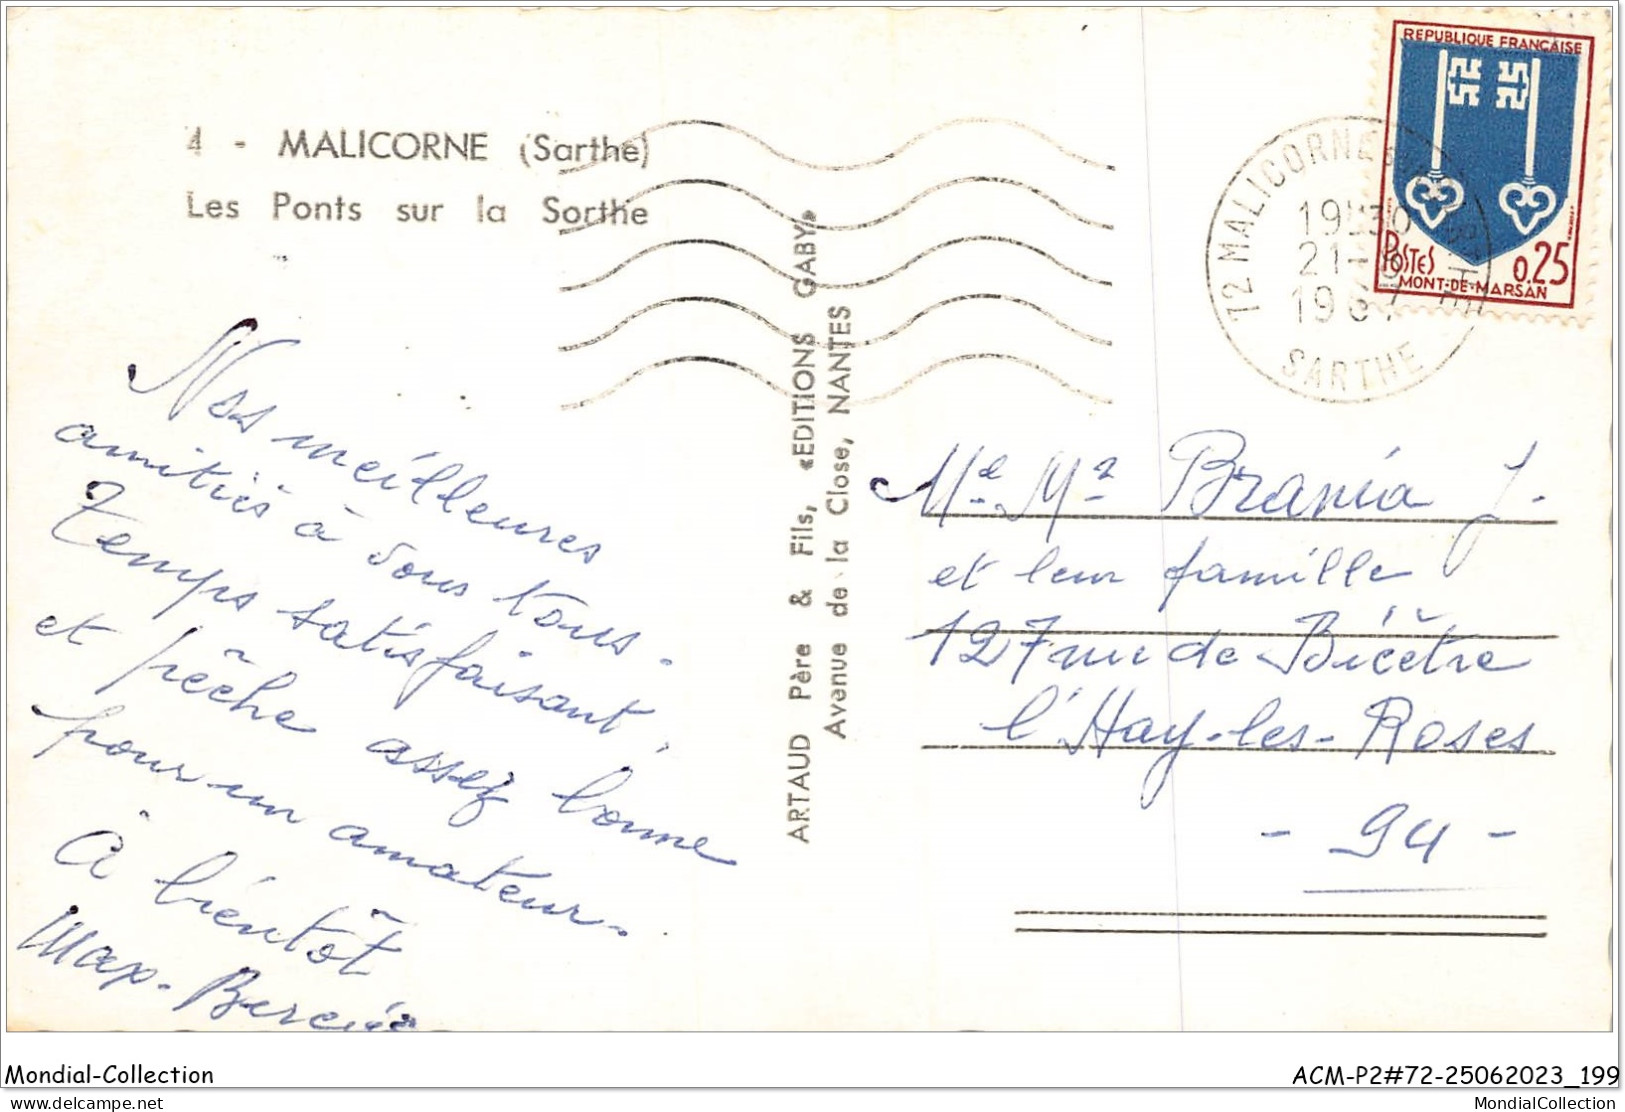 4 - MALICORNE (Sarthe)
Les Ponts sur la Sorthe
REPUBLIQUE FRANÇAISE
POSTES 0.25
MONT-DE-MARSAN
72 MALICORNE
19H30
21-
1967
SARTHE
Nos meilleures
amitiés à vous tous.
Temps satisfaisant,
et pêche assez bonne
pour un amateur.
À bientôt
Max.
ARTAUD Père & Fils, «EDITIONS GABY»
Avenue de la Close, NANTES
Me Mr Brania J.
et leur famille
127 rue de Bicêtre
l'Hay-les-Roses
- 94 -
Mondial-Collection
ACM-P2#72-25062023_199
delcampe.net
MondialCollection